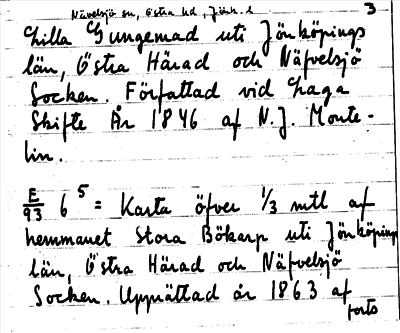 Nävelsjö sn, Östra hd, Jönk. l 3
Lilla Gungemad uti Jönköpings
län, Östra Härad och Näfvelsjö
Socken. Författad vid Laga
Skifte År 1846 af N. J. Monte-
lin.
E/93 6⁵ = Karta öfver 1/3 mtl af
hemmanet Stora Bökarp uti Jönköpings
län, Östra Härad och Näfvelsjö
Socken. Upprättad år 1863 af
forts